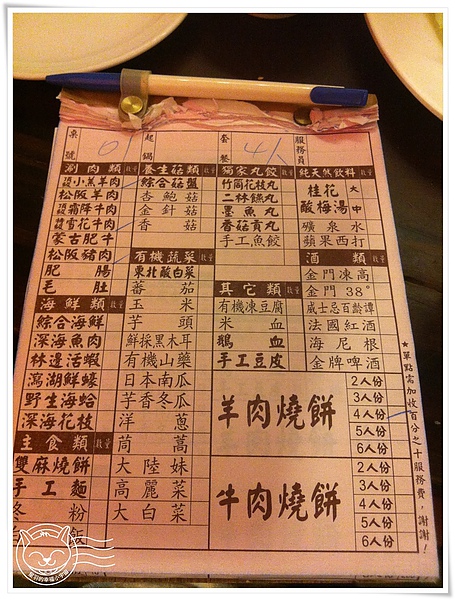 桌號 01 起鍋 套餐 4人 服務員
涮肉類 數量
頂級小羔羊肉
松阪羊肉
頂級霜降牛肉
特級雪花牛肉
蒙古肥牛
松阪豬肉
肥腸
毛肚
海鮮類 數量
綜合海鮮
深海魚肉
林邊活蝦
瀉湖鮮蠔
野生海蛤
深海花枝
主食類 數量
雙麻燒餅
手工麵
冬粉
養生菇類 數量
綜合菇盤
杏鮑菇
金針菇
香菇
有機蔬菜 數量
東北酸白菜
番茄
玉米
芋頭
鮮採黑木耳
有機山藥
日本南瓜
芋香冬瓜
洋蔥
茼蒿
大陸妹
高麗菜
大白菜
獨家丸餃 數量
竹筒花枝丸
二林貢丸
墨魚丸
香菇貢丸
手工魚餃
其它類 數量
有機凍豆腐
米血
鴨血
手工豆皮
純天然飲料 數量
桂花酸梅湯 大 中
礦泉水
蘋果西打
酒類 數量
金門凍高
金門38°
威士忌百齡譚
法國紅酒
海尼根
金牌啤酒
羊肉燒餅
2人份
3人份
4人份
5人份
6人份
牛肉燒餅
2人份
3人份
4人份
5人份
6人份
★單點需加收百分之十服務費,謝謝!